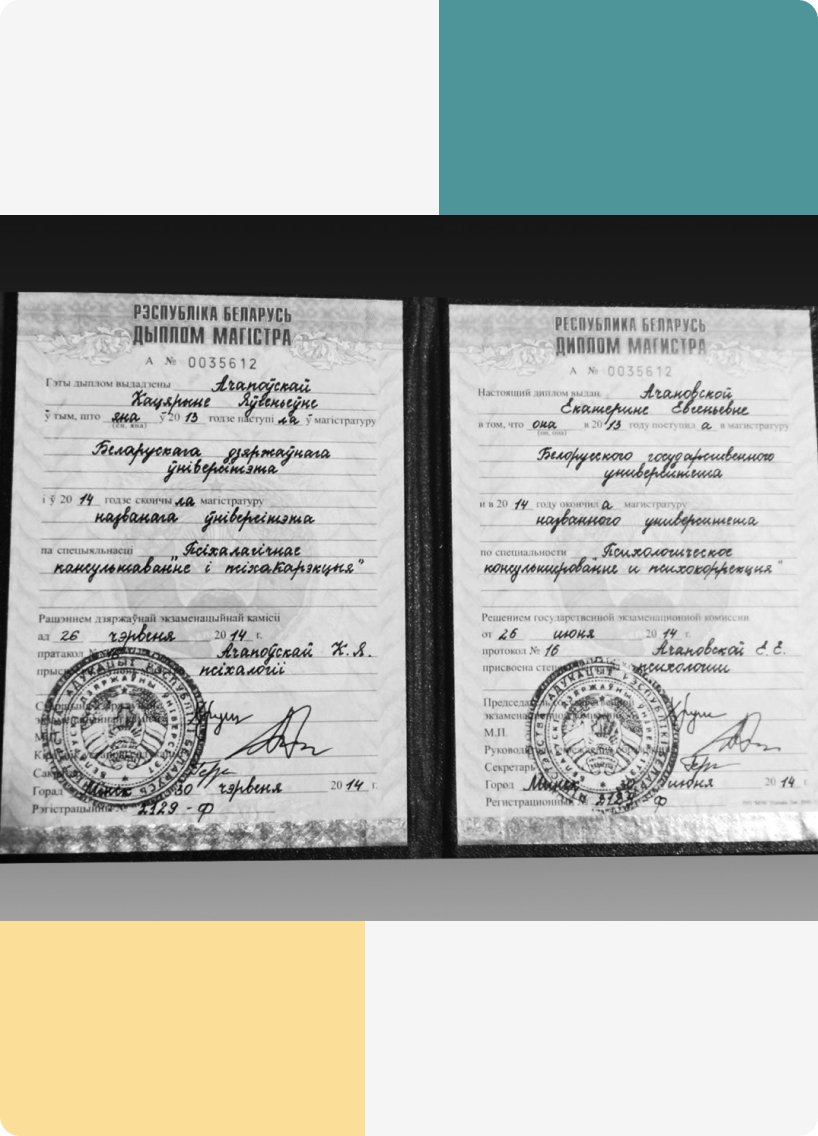 РЭСПУБЛІКА БЕЛАРУСЬ
ДЫПЛОМ МАГІСТРА
А № 0035612
Гэты дыплом выдадзены Ачапоўскай
Кацярыне Яўгеньеўне
ў тым, што яна ў 20 13 годзе паступі ла ў магістратуру
(ён, яна)
Беларускага дзяржаўнага
ўніверсітэта
і ў 20 14 годзе скончы ла магістратуру
названага ўніверсітэта
па спецыяльнасці "Псіхалагічнае
кансультаванне і псіхакарэкцыя"
Рашэннем дзяржаўнай экзаменацыйнай камісіі
ад 26 чэрвеня 20 14 г.
пратакол № 16 Ачапоўскай К.Я.
псіхалогіі
М.П.
Горад Мінск 30 чэрвеня 20 14 г.
Рэгістрацыйны № 2129 - Ф
РЕСПУБЛИКА БЕЛАРУСЬ
ДИПЛОМ МАГИСТРА
А № 0035612
Настоящий диплом выдан Ачановской
Екатерине Евгеньевне
в том, что она в 20 13 году поступил а в магистратуру
(он, она)
Белорусского государственного
университета
и в 20 14 году окончил а магистратуру
названного университета
по специальности "Психологическое
консультирование и психокоррекция"
Решением государственной экзаменационной комиссии
от 26 июня 20 14 г.
протокол № 16 Ачановской Е.Е.
присвоена степень психологии
Председатель государственной
экзаменационной комиссии
М.П.
Руководитель
Секретарь
Город Минск 30 июня 20 14 г.
Регистрационный № Ф